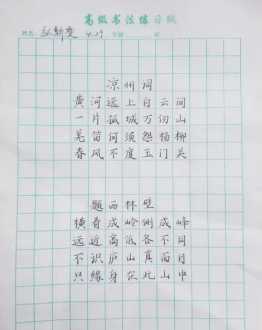 高级书法练习纸
姓名: 4.19
凉州词
黄河远上白云间
一片孤城万仞山
羌笛何须怨杨柳
春风不度玉门关
题西林壁
横看成岭侧成峰
远近高低各不同
不识庐山真面目
只缘身在此山中